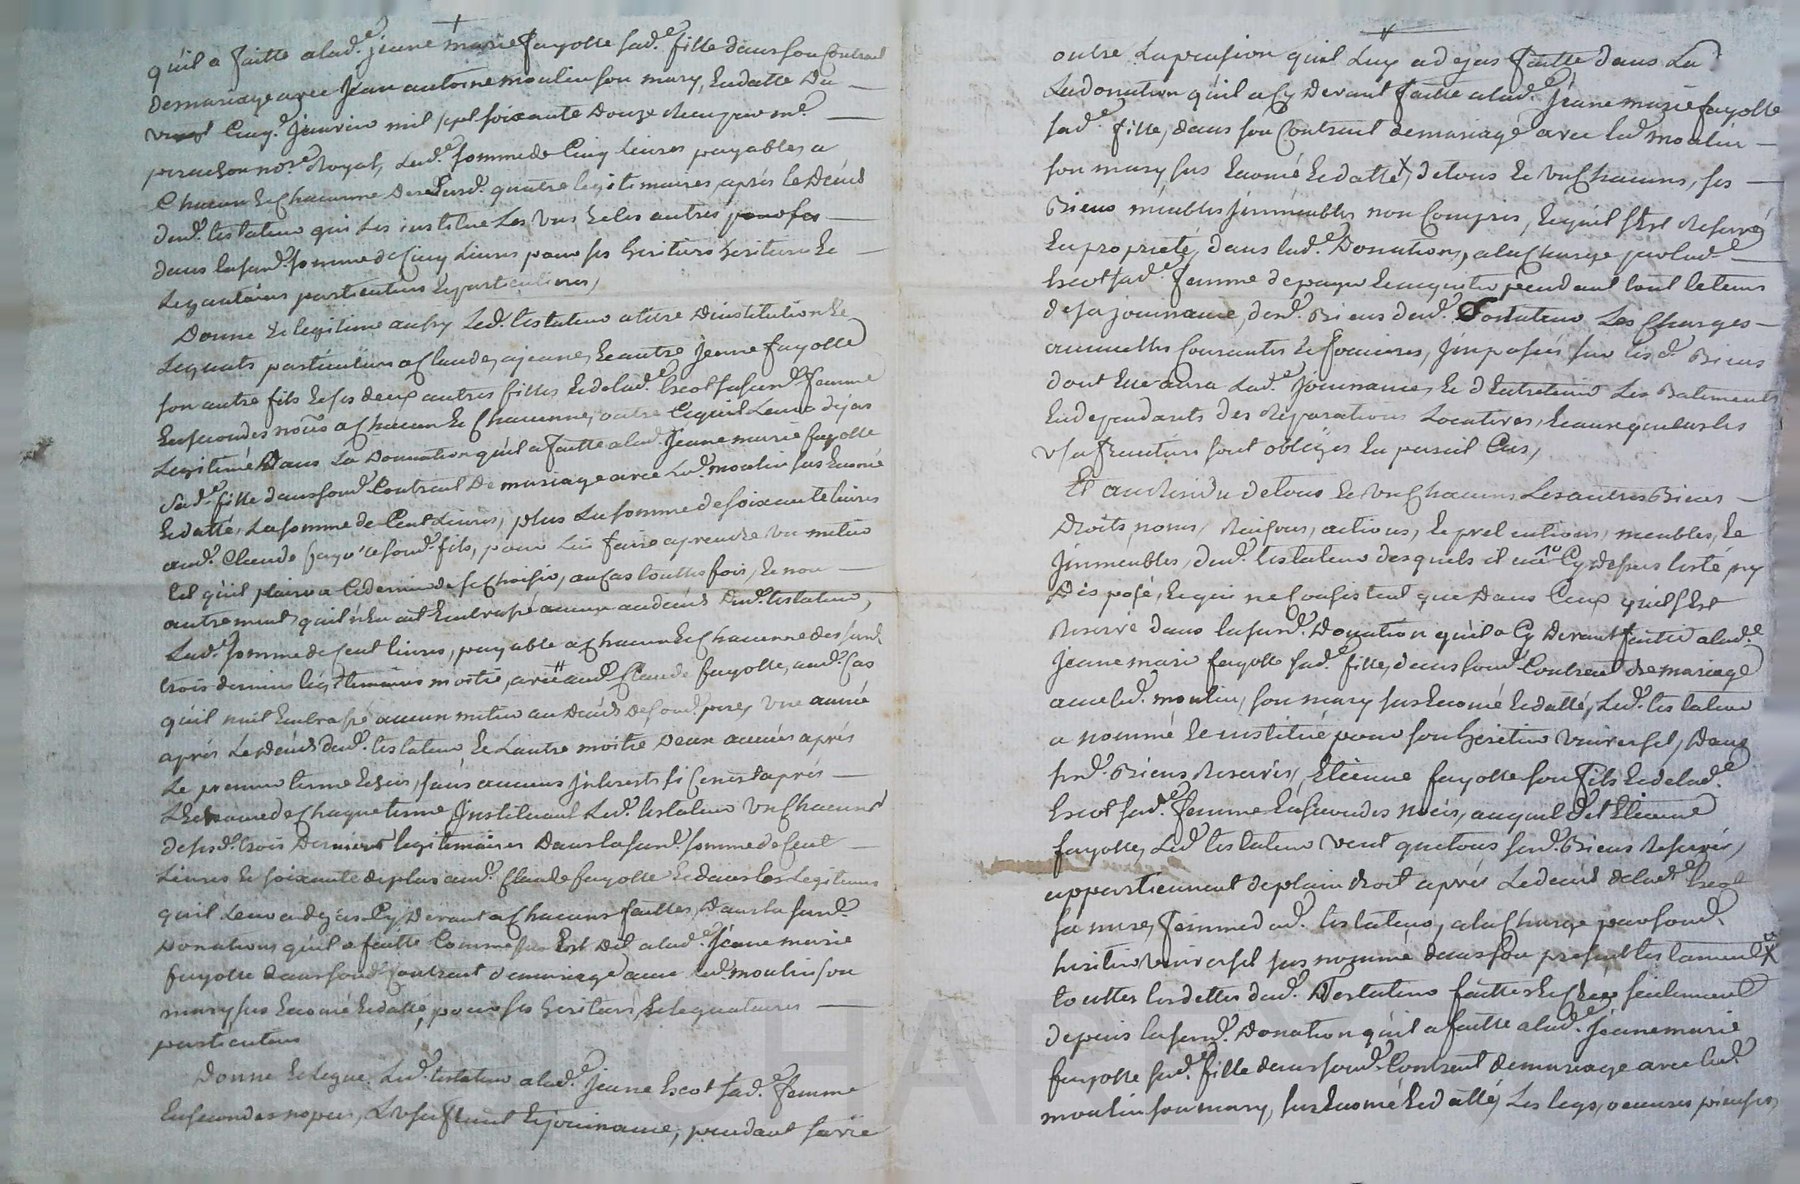 qu'il a faitte a lad.e jeane marie fayolle sad.e fille dans son Contrat
de mariage avec Jean antoine moulin son mary, En datte Du
vingt Cinq.e Janvier mil sept soixante Douze Reçu par m.e
not.re Royal, Lad.e somme de Cinq livres payables a
Chacun Et Chacunne Desd. quatre legitimaires, après le Décès
dud. testateur qui Les institue Les Uns Et les autres
dans lasusd. somme de Cinq Livres pour ses heritiers heritiere Et
Legataires particuliers Et particulieres,
Donne Et legitime aussy Led. testateur a titre D'institution Et
Legats particuliers a Claude, a jeane, Et autre Jeanne fayolle
son autre fils Et ses deux autres filles Et de lad.e Escot sasusd. femme
En secondes noces a Chacun Et Chacunne, outre Ce qu'il Leur a dejas
Legitimé Dans La Donnation qu'il a faitte a lad. Jeane marie fayolle
sad.e fille dans sond. Contract De mariage avec Led. moulin sus Enoncé
Et datté, La somme de Cent Livres, plus La somme de soixante livres
aud. Claude fayolle sond. fils, pour Lui faire aprendre Un métier
tel qu'il plaira a Ce dernier de se Choisir, au Cas touttes fois, Et non
autrement, qu'il n'En ait Embrassé aucun au décès Dud. testateur,
Lad. somme de Cent livres, payable a Chacun Et Chacunne des susd.
trois derniers légitimaires moitié, aud. Claude fayolle, aud. Cas
qu'il n'ait Embrassé aucun métier au Décès De sond. pere, Une année
après Le Décès dud. testateur Et L'autre moitié Deux années après
Le premier terme Echus, sans aucuns Interests si Ce n'est après
L'Echeance de Chaque terme Instituant Led. testateur Un Chacuns
de sesd. trois Derniers legitimaires Dans lasusd. somme de Cent
Livres Et soixante de plus aud. Claude fayolle Et dans les Legitimes
qu'il Leur a dejas Cy Devant a Chacuns faittes, Dans la susd.
Donation qu'il a faitte Comme sus Est Dit a lad.e Jeane marie
fayolle dans sond. Contract de mariage avec led. moulin son
mary sus Enoncé Et datté, pour ses heritiers, Et legataires
particuliers
Donne Et Legue Led. testateur a lad.e jeane Escot sad.e femme
En secondes nopces, L'usufruit Et jouissance, pendant sa vie
outre La pension qu'il Luy a dejas faitte dans La
Ladonation qu'il a Cy Devant faitte a lad.e Jéane marie fayolle
sad.e fille, dans son Contract de mariage avec led. moulin
son mary sus Enoncé Et datté, de tous Et Un Chacuns, ses
Biens méubles Imméubles non Compris, Ce qu'il s'Est Reservé
En proprieté, dans lad.e Donation, a la Charge par lad.e
Escot sad.e femme de payer Et acquitter pendant tout le tems
de sa jouissance, desd. Biens dud. Testateur Les Charges
annuelles Courantes Et foncieres, Imposées sur lesd. Biens
dont Elle aura Lad.e Jouissance, Et d'Entretenir Les Batiments
En dependants des Reparations Locatives, Et auxquelles les
Usufruitiers sont obligés En pareil Cas,
Et au Residu de tous Et Un Chacuns Les autres Biens
Droits, noms, Raisons, actions, Et prétentions, meubles, Et
Immeubles, dud. testateur desquels il n'a Cy Dessus testé, ny
Disposé, Et qui ne Consistent que Dans Ceux qu'il s'Est
Reservé dans la susd. Donation qu'il a Cy Devant faitte a lad.e
Jeane marie fayolle sad.e fille, dans sond. Contract de mariage
avec led. moulin, son mary sus Enoncé Et datté, Led. testateur
a nommé Et institué pour son heritier Universel, Dans
sesd. Biens Reservés, Etienne fayolle son fils Et de lad.e
Escot sad.e femme En secondes nôces, auquel Dit Etienne
fayolle, Led. testateur veut que tous sesd. Biens Reservés,
appartiennent de plain droit après Le décès de lad.e Escot
sa mere, femme dud. testateur, a la Charge par sond.
heritier Universel sus nommé dans son present testament
touttes les dettes dud. Testateur faittes seulement
depuis lasusd. Donation qu'il a faitte a lad.e Jéane marie
fayolle sad.e fille dans sond. Contract de mariage avec led.
moulin son mary, sus Enoncé Et datté, Les legs, oeuvres pieuses,
CHAREY